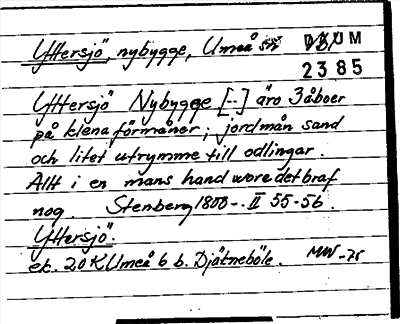 Yttersjö, nybygge, Umeå sn DAUM
2385
Yttersjö Nybygge [--] äro 3 åboer
på klena förmåner; jordmån sand
och litet utrymme till odlingar.
Allt i en mans hand wore det braf
nog. Stenberg 1800-. II 55-56.
Yttersjö.
ek. 20 K Umeå 6 b. Djäkneböle. MW-75